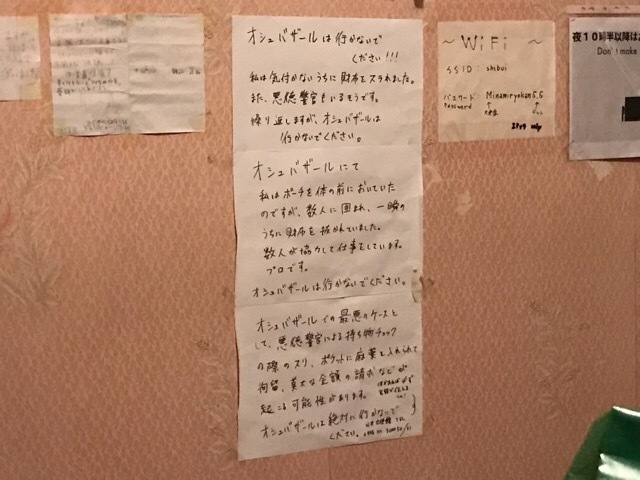 オシュバザールは行かないで
ください!!!
私は気付かないうちに財布をスラれました。
また、悪徳警官もいるそうです。
繰り返しますが、オシュバザールは
行かないでください。
オシュバザールにて
私はポーチを体の前においていた
のですが、数人に囲まれ、一瞬の
うちに財布を抜かれていました。
数人が協力して仕事をしています。
プロです。
オシュバザールは行かないでください。
オシュバザールでの最悪のケースと
して、悪徳警官による持ち物チェック
の際のスリ、ポケットに麻薬を入れられて
拘留、莫大な金額の請求などが
起こる可能性があります。
オシュバザールは絶対に行かないで
ください。
~ WiFi ~
SSID: shibui
パスワード: Minamiryokan5,6
Password
夜10時半以降は
Don't make